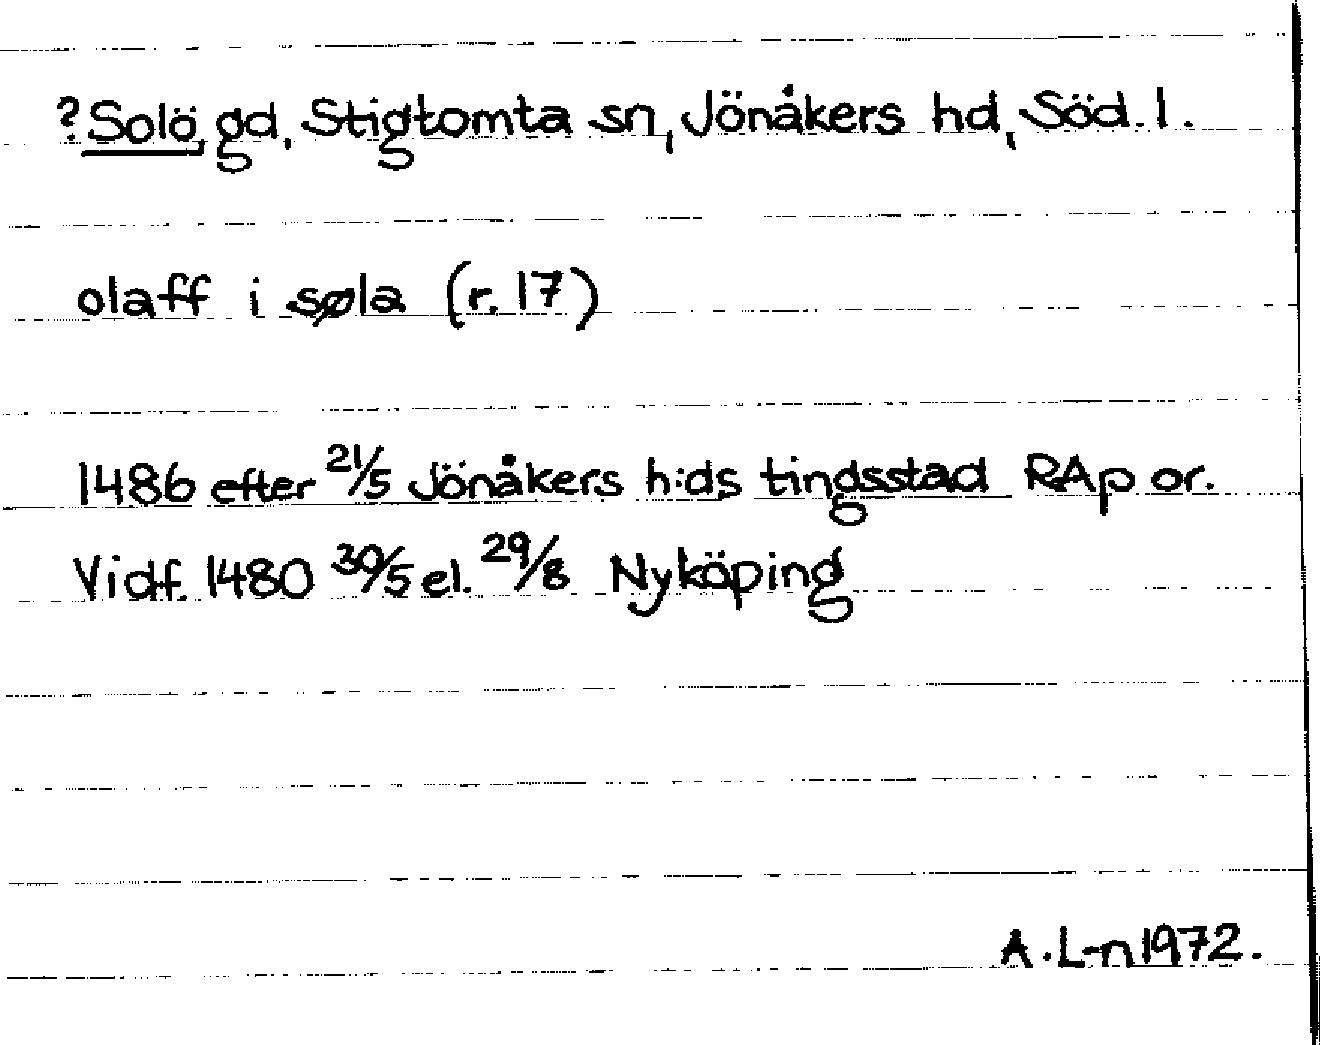 ?Solö, gd, Stigtomta sn, Jönåkers hd, Söd. l.
olaff i søla (r. 17)
1486 efter 21/5 Jönåkers h:ds tingsstad RAp or.
Vidf. 1480 30/5 el. 29/8 Nyköping
A. L-n 1972.